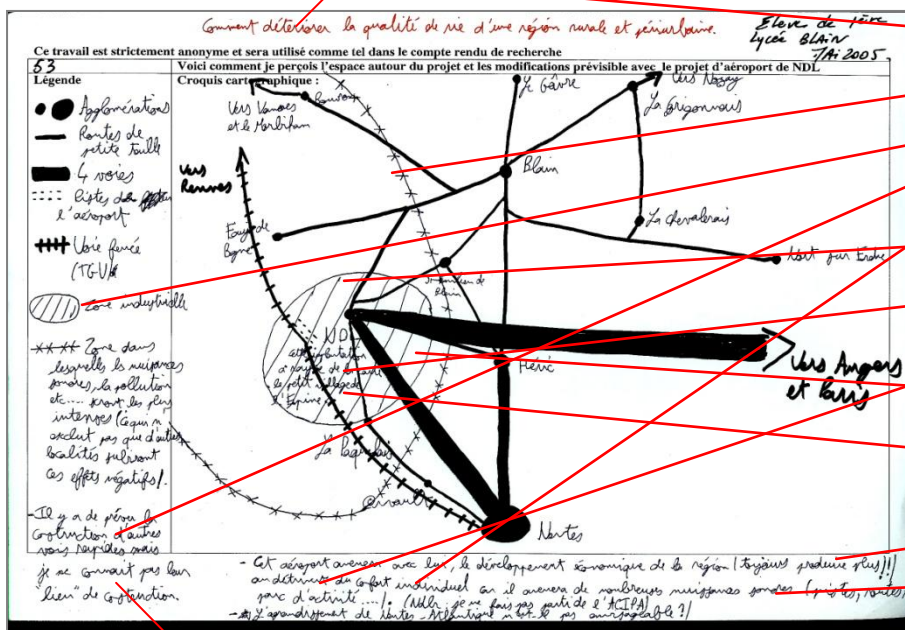 Comment détériorer la qualité de vie d'une région rurale et périurbaine.
Elève de 1ère
Lycée BLAiN
MAi 2005.
Ce travail est strictement anonyme et sera utilisé comme tel dans le compte rendu de recherche
53
Voici comment je perçois l'espace autour du projet et les modifications prévisible avec le projet d'aéroport de NDL
Légende
Croquis cartographique :
Agglomérations
Routes de
petite taille
4 voies
pistes de
l'aéroport
Voie ferrée
(TGV)
Zone industrielle
Zone dans
lesquelles les nuisances
sonores, la pollution
etc.... seront les plus
intenses (ce qui n'
exclut pas que d'autres
localités subiront
ces effets négatifs).
- Il y a de prévu la
construction d'autres
voies rapides mais
je ne connait pas leur
"lieu" de construction.
Bouvron
Vers Vannes
et le Morbihan
Le Gâvre
Vers Nozay
La Grigonnais
Vers
Rennes
Blain
La Chevalerais
Fay de
Bgne
Nort sur Erdre
St Emilien de
Blain
NDL
cette
a rayé de la carte
le petit village de
l'Epine
Héric
Vers Angers
et Paris
La Paquelais
Orvault
Nantes
- Cet aéroport amenera avec lui, le développement économique de la région (toujours produire plus!!)
au détriment du confort individuel car il amenera de nombreuses nuisances sonores (pistes, routes,
parc d'activité ...). (Ndlr: je ne fais pas parti de l'ACIPA)
- L'agrandissement de Nantes-Atlantique n'est-il pas envisageable?!